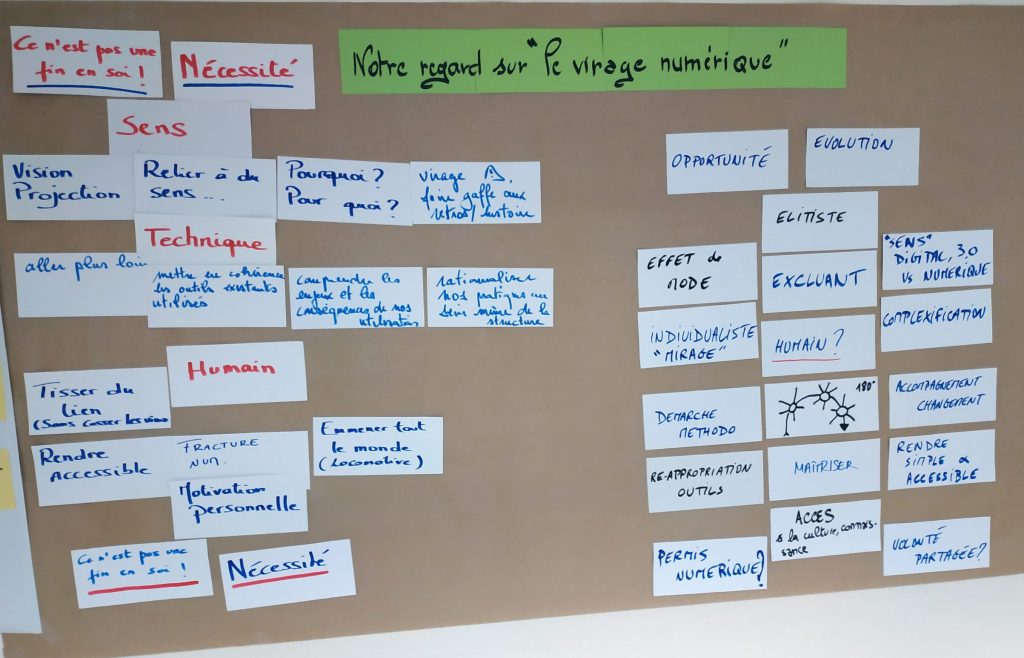 Notre regard sur "le virage numérique"
Ce n'est pas une
fin en soi !
Nécessité
Sens
Vision
Projection
Relier à du
sens...
Pourquoi ?
Pour quoi ?
virage
faire gaffe aux
retros/histoire
Technique
aller plus loin
mettre en cohérence
les outils existants
utilisés
comprendre les
enjeux et les
conséquences de nos
utilisations
rationnaliser
nos pratiques au
sein même de la
structure
Humain
Tisser du
lien
(Sans casser les
Rendre
accessible
FRACTURE
NUM.
Emmener tout
le monde
(Locomotive)
Motivation
personnelle
Ce n'est pas une
fin en soi !
Nécessité
OPPORTUNITÉ
EVOLUTION
ELITISTE
EFFET de
MODE
EXCLUANT
"SENS"
DIGITAL, 3.0
VS NUMÉRIQUE
INDIVIDUALISTE
"MIRAGE"
HUMAIN ?
COMPLEXIFICATION
DEMARCHE
METHODO
180°
ACCOMPAGNEMENT
CHANGEMENT
RE-APPROPRIATION
OUTILS
MAÎTRISER
RENDRE
SIMPLE &
ACCESSIBLE
PERMIS
NUMERIQUE ?
ACCES
à la culture, connais-
sance
VOLONTÉ
PARTAGÉE ?